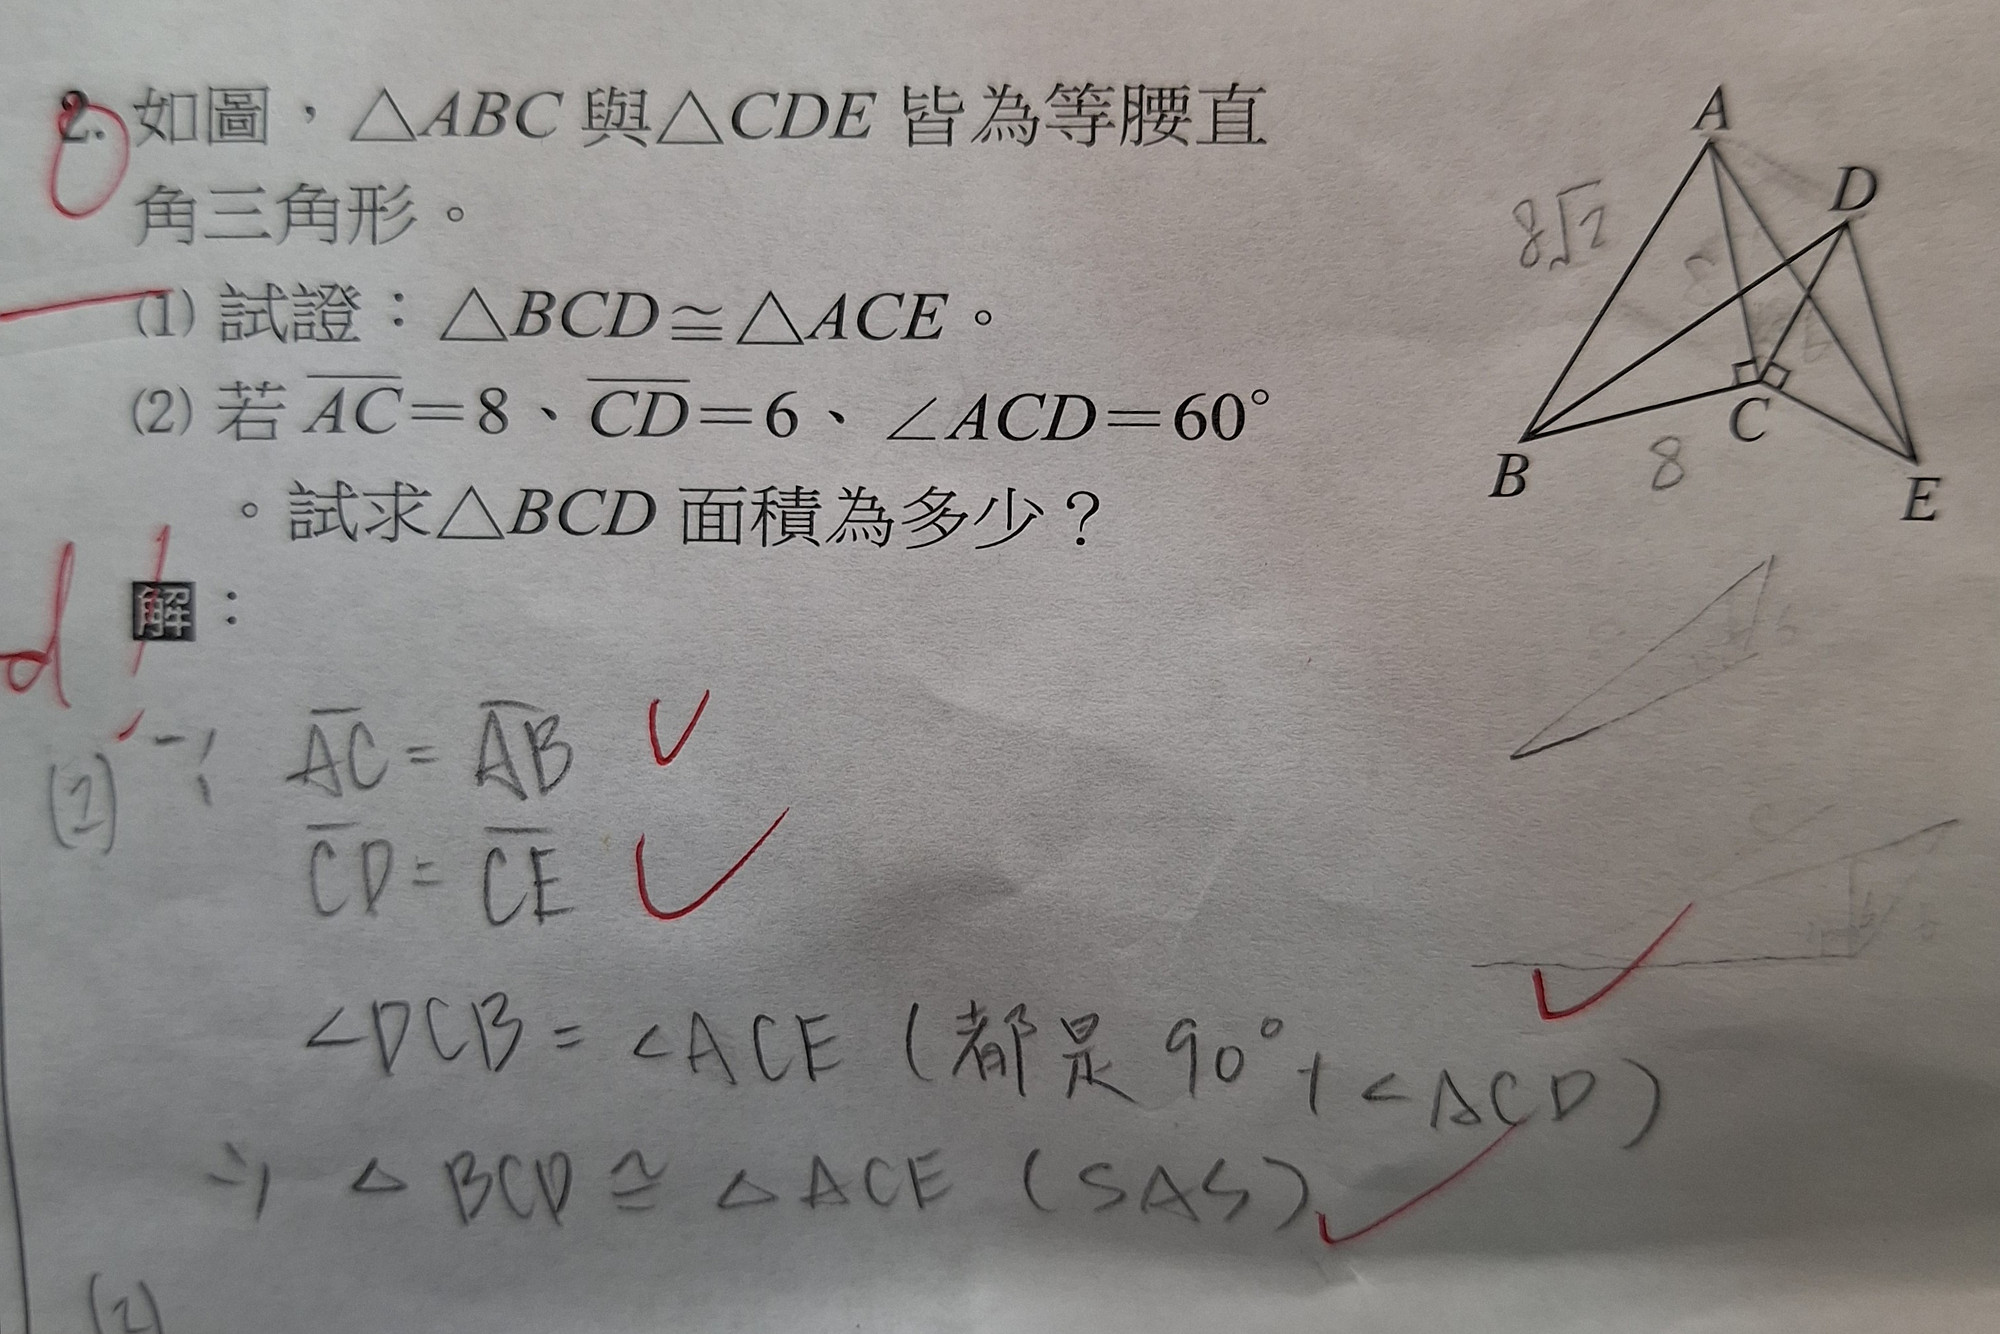 2. 如圖，△ABC 與△CDE 皆為等腰直
角三角形。
(1) 試證：△BCD≅△ACE。
(2) 若 \overline{AC}=8、\overline{CD}=6、∠ACD=60°
。試求△BCD 面積為多少？
A
D
8√2
C
B
8
E
解：
(1) ∵ \overline{AC} = \overline{AB}
\overline{CD} = \overline{CE}
∠DCB = ∠ACE (都是 90° + ∠ACD)
∴ △BCD ≅ △ACE (SAS)
(2)